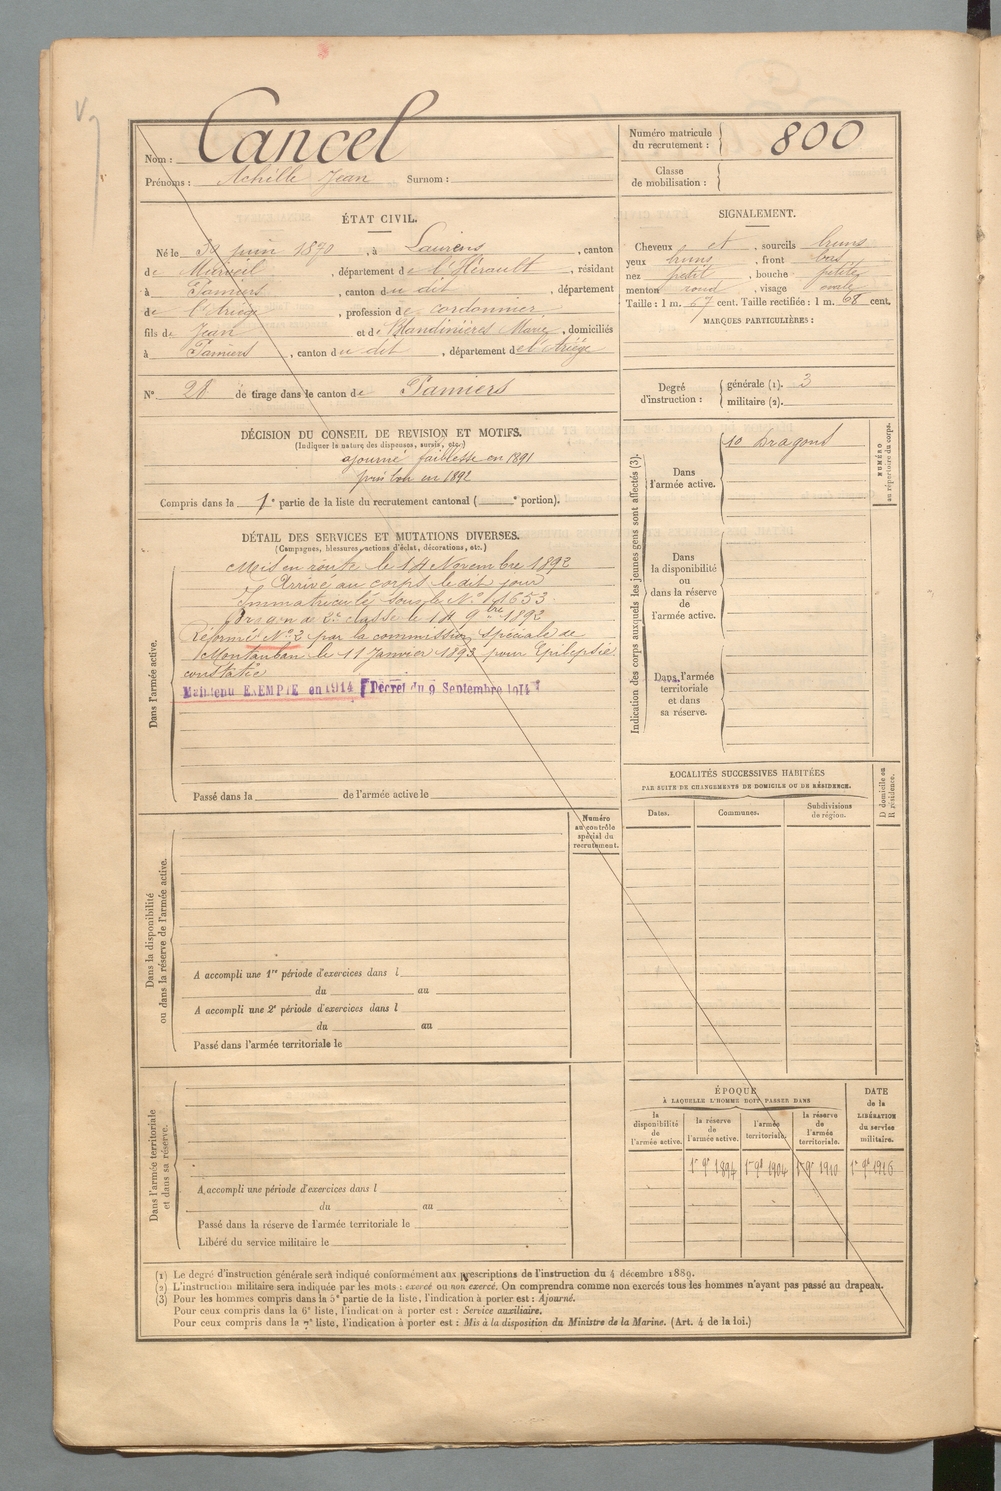 Nom : Cancel
Prénoms : Achille Jean Surnom :
Numéro matricule du recrutement : 800
Classe de mobilisation :
ÉTAT CIVIL.
Né le 30 juin 1870, à Laurens, canton
de Murviel, département de l'Hérault, résidant
à Pamiers, canton du dit, département
de l'Ariège, profession de cordonnier
fils de Jean et de Blandinières Marie, domiciliés
à Pamiers, canton du dit, département de l'Ariège
N° 28 de tirage dans le canton de Pamiers
SIGNALEMENT.
Cheveux et, sourcils bruns
yeux bruns, front bas
nez petit, bouche petite
menton rond, visage ovale
Taille : 1 m. 67 cent. Taille rectifiée : 1 m. 68 cent.
MARQUES PARTICULIÈRES :
Degré d'instruction : générale (1). 3
militaire (2).
DÉCISION DU CONSEIL DE REVISION ET MOTIFS.
(Indiquer la nature des dispenses, sursis, etc.)
ajourné faiblesse en 1891
pris bon en 1892
Compris dans la 1e partie de la liste du recrutement cantonal ( e portion).
DÉTAIL DES SERVICES ET MUTATIONS DIVERSES.
(Campagnes, blessures, actions d'éclat, décorations, etc.)
Dans l'armée active.
Mis en route le 14 Novembre 1892
Arrivé au corps le dit jour
Immatriculé sous le N°
Dragon de 2e classe le 14 9bre 1892
Réformé N° 2 par la commission spéciale de
Montauban le 11 Janvier 1893 pour Epilepsie
constatée
Maintenu EXEMPTE en 1914 Décret du 9 Septembre 1914
Passé dans la de l'armée active le
Indication des corps auxquels les jeunes gens sont affectés (3).
NUMÉRO au répertoire du corps.
Dans l'armée active.
10 Dragons
Dans la disponibilité ou dans la réserve de l'armée active.
Dans l'armée territoriale et dans sa réserve.
LOCALITÉS SUCCESSIVES HABITÉES
PAR SUITE DE CHANGEMENTS DE DOMICILE OU DE RÉSIDENCE.
Dates. Communes. Subdivisions de région.
D domicile ou R résidence.
Dans la disponibilité ou dans la réserve de l'armée active.
Numéro au contrôle spécial du recrutement.
A accompli une 1re période d'exercices dans l
du au
A accompli une 2e période d'exercices dans l
du au
Passé dans l'armée territoriale le
Dans l'armée territoriale et dans sa réserve.
A accompli une période d'exercices dans l
du au
Passé dans la réserve de l'armée territoriale le
Libéré du service militaire le
ÉPOQUE
À LAQUELLE L'HOMME DOIT PASSER DANS
la disponibilité de l'armée active.
la réserve de l'armée active.
l'armée territoriale.
la réserve de l'armée territoriale.
DATE de la LIBÉRATION du service militaire.
1er 9e 1894 1er 9e 1904 1er 9e 1910 1er 9e 1916
(1) Le degré d'instruction générale sera indiqué conformément aux prescriptions de l'instruction du 4 décembre 1889.
(2) L'instruction militaire sera indiquée par les mots : exercé ou non exercé. On comprendra comme non exercés tous les hommes n'ayant pas passé au drapeau.
(3) Pour les hommes compris dans la 5e partie de la liste, l'indication à porter est : Ajourné.
Pour ceux compris dans la 6e liste, l'indication à porter est : Service auxiliaire.
Pour ceux compris dans la 7e liste, l'indication à porter est : Mis à la disposition du Ministre de la Marine. (Art. 4 de la loi.)